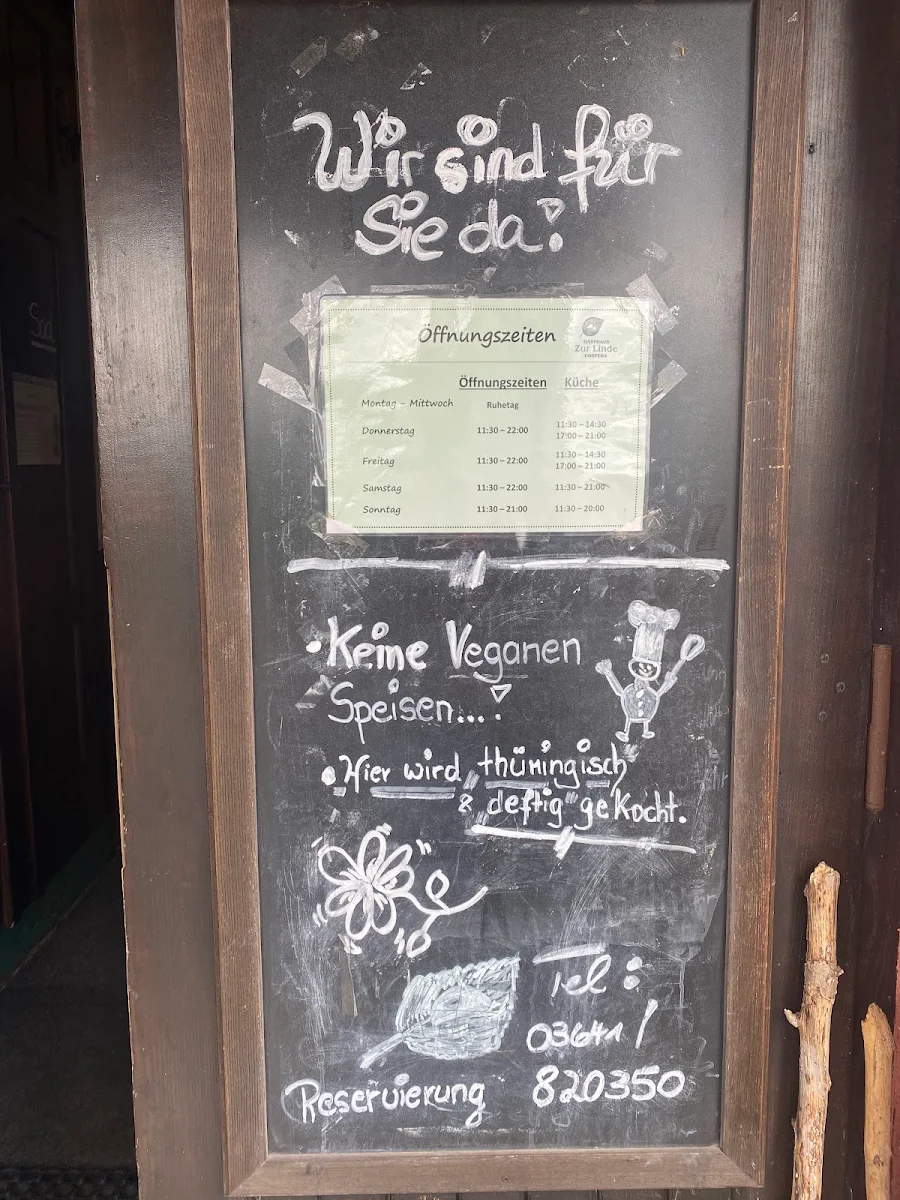 Wir sind für
Sie da!
Öffnungszeiten
GASTHAUS
Zur Linde
COSPEDA
Öffnungszeiten Küche
Montag – Mittwoch Ruhetag
Donnerstag 11:30 – 22:00 11:30 – 14:30
17:00 – 21:00
Freitag 11:30 – 22:00 11:30 – 14:30
17:00 – 21:00
Samstag 11:30 – 22:00 11:30 – 21:00
Sonntag 11:30 – 21:00 11:30 – 20:00
• Keine Veganen
Speisen...!
• Hier wird thüringisch
& deftig gekocht.
Tel:
03641/
Reservierung 820350